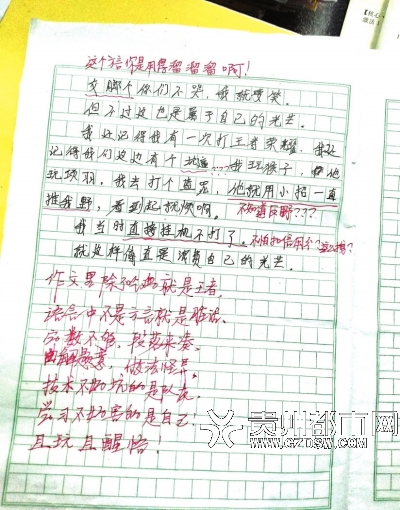 这个语你是用得溜溜溜啊!
文脚个你们不哭,我就嘤笑。
但不过这也是属于自己的光芒。
我还记得我有一次打王者荣耀,我还
记得我们这边有个地痞……我玩猴子,他
玩项羽,我去打个蓝爸,他就用小招一直
推我野,看到起就烦啊。不知道反野???
我当时直接挂机不打了。不怕扣信用分?
就这样简直是浪费自己的光芒。
作文里除了吃鸡就是王者,
语言中不是方言就是脏话。
字数不够,段落来凑。
做法怪异。
技术不好坑的是队友,
学习不好害的是自己!
且坑且醒悟!
贵州都市网
WWW.GZDSW.COM